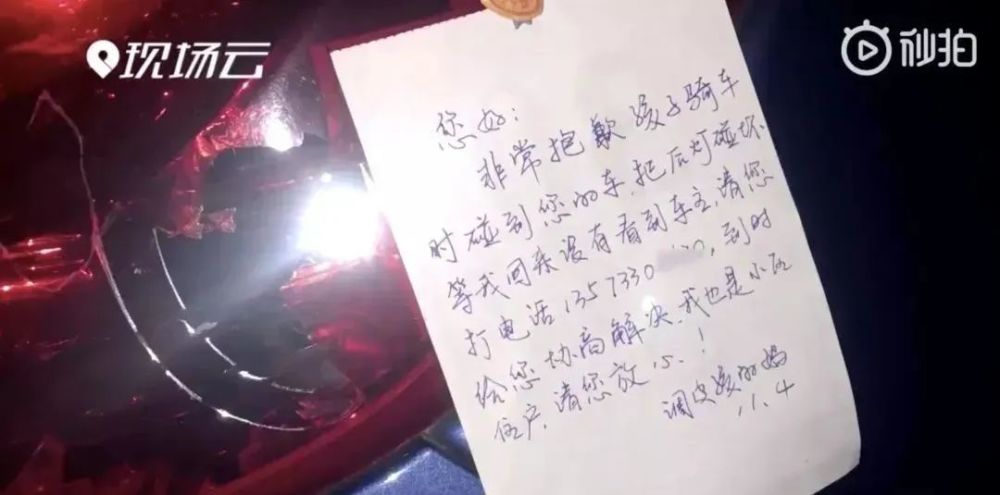 现场云
秒拍
您好：
非常抱歉孩子骑车
时碰到您的车.把后灯碰坏
等我回来没有看到车主,请您
打电话1357330 ,到时
给您协商解决.我也是小区
住户,请您放心!
调皮孩的妈
11.4